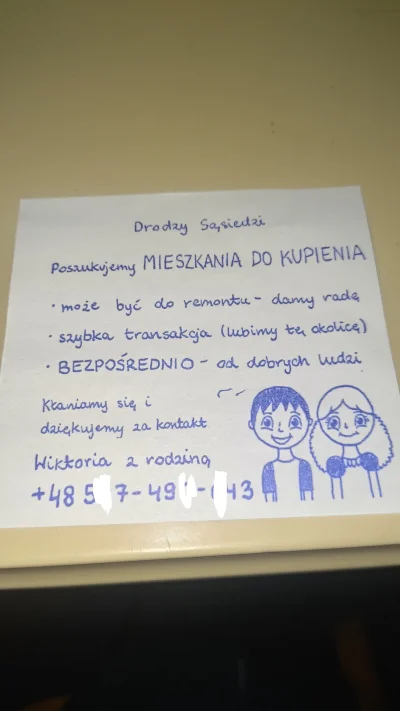 Drodzy Sąsiedzi
Poszukujemy MIESZKANIA DO KUPIENIA
• może być do remontu - damy radę
• szybka transakcja (lubimy tę okolicę)
• BEZPOŚREDNIO - od dobrych ludzi
Kłaniamy się i
dziękujemy za kontakt
Wiktoria z rodziną
+48 5 7-49 - 43